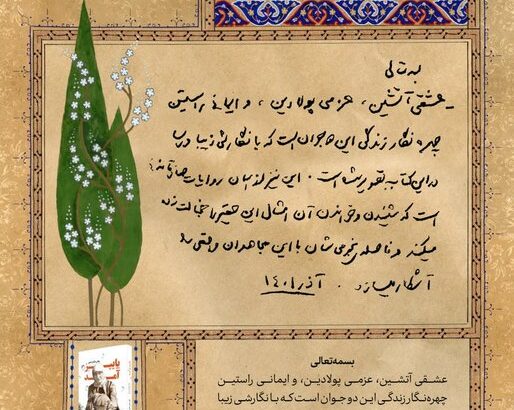 بسمه تعالی
عشقی آتشین، عزمی پولادین، و ایمانی راستین
چهره نگار زندگی این دو جوان است که با نگارشی زیبا و رسا
در این کتاب تصویر شده است. این نیز از آن روایات صادقانه‌ای
است که شنیدن و خواندن آن امثال این حقیر را خجالت زده
میکند و فاصله‌ی نجومی شان با این مجاهدان واقعی را
آشکار میسازد. آذر ۱۴۰۱
پاییز
آمد
بسمه‌تعالی
عشقی آتشین، عزمی پولادین، و ایمانی راستین
چهره‌نگار زندگی این دو جوان است که با نگارشی زیبا